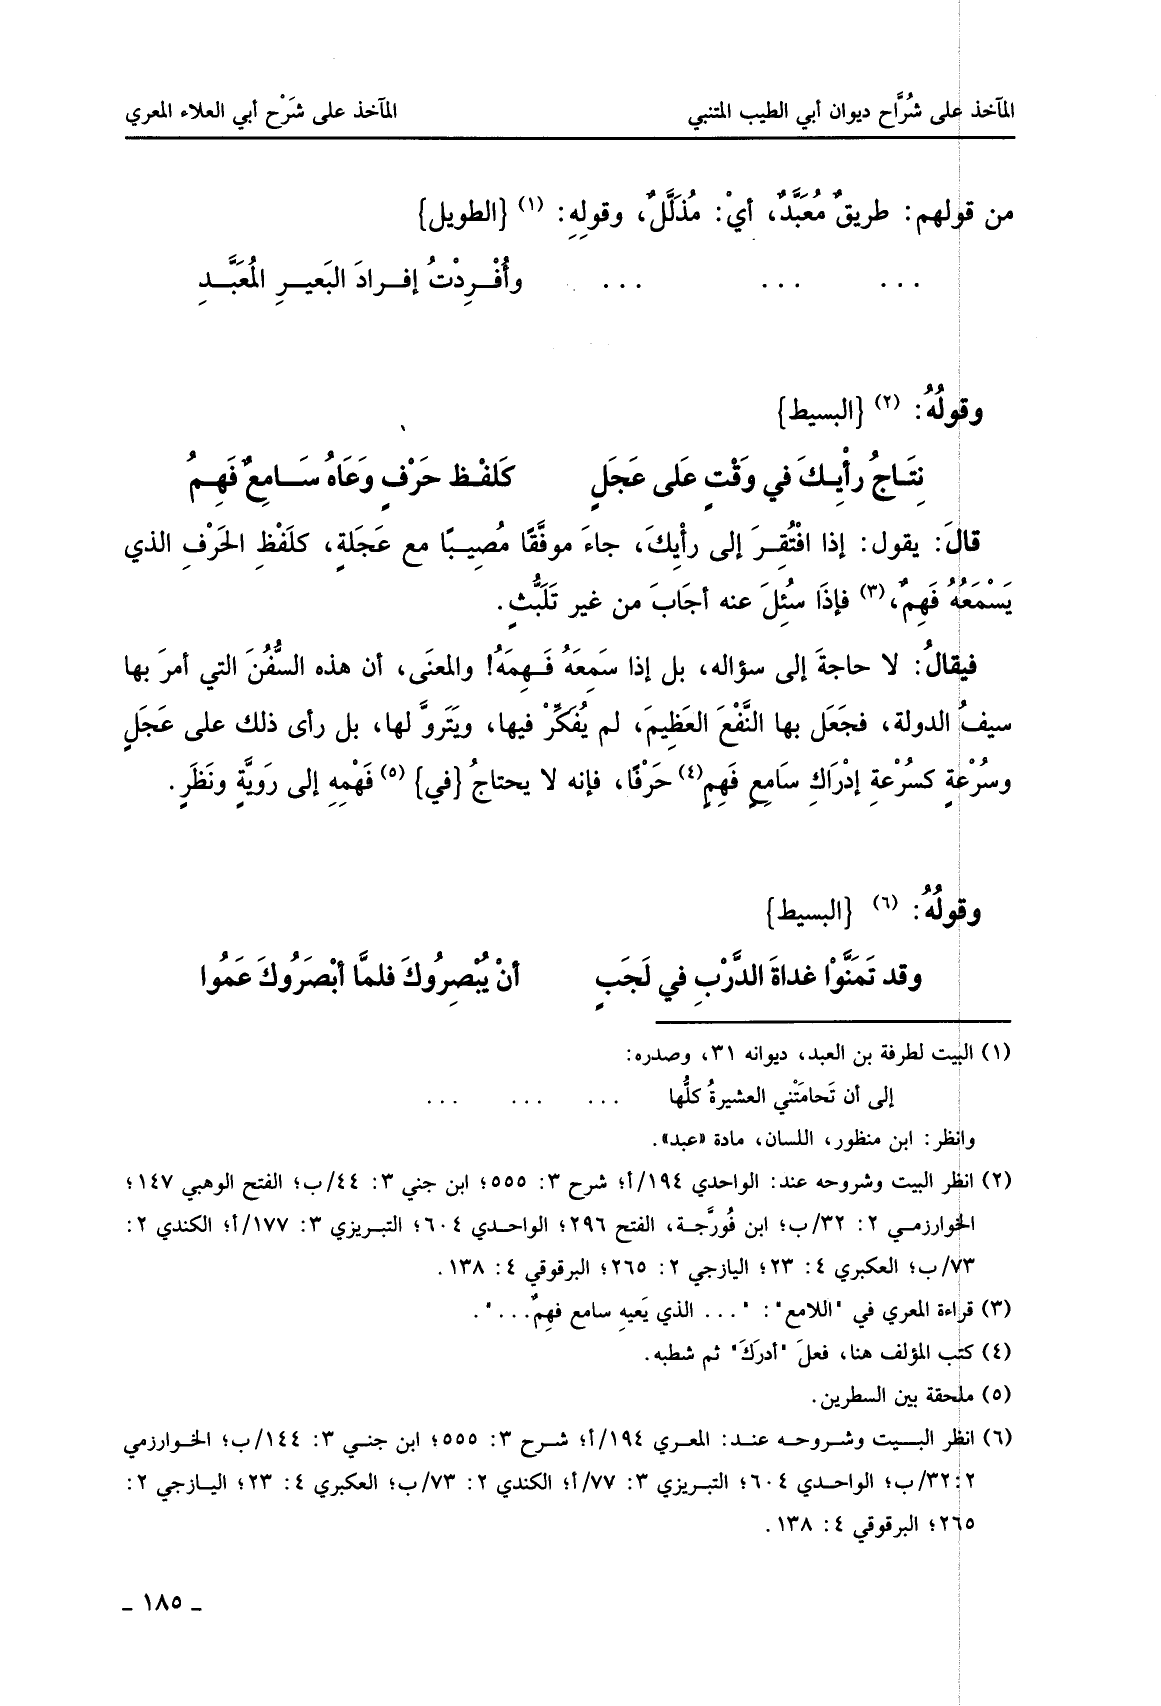 المآخذ على شُرَّاح ديوان أبي الطيب المتنبي المآخذ على شَرْح أبي العلاء المعري
من قولهم: طريقٌ مُعَبَّدٌ، أيْ: مُذَلَّلٌ، وقولِهِ: (١) {الطويل}
... ... ... وأُفْرِدْتُ إفرادَ البَعيرِ المُعَبَّدِ
وقولُهُ: (٢) {البسيط}
نِتَاجُ رأْيِكَ في وَقْتٍ عَلى عَجَلٍ كَلَفْظِ حَرْفٍ وَعَاهُ سَامِعٌ فَهِمُ
قالَ: يقول: إذا افْتُقِرَ إلى رأْيِكَ، جاءَ موفَّقًا مُصِيبًا مع عَجَلةٍ، كلَفْظِ الحَرْفِ الذي
يَسْمَعُهُ فَهِمٌ،(٣) فإذَا سُئِلَ عنه أجَابَ من غير تَلَبُّثٍ.
فيقالُ: لا حاجةَ إلى سؤاله، بل إذا سَمِعَهُ فَهِمَهُ! والمعنَى، أن هذه السُّفُنَ التي أمرَ بها
سيفُ الدولة، فجَعَل بها النَّفْعَ العَظِيمَ، لم يُفَكِّرْ فيها، ويَتَروَّ لها، بل رأى ذلك على عَجَلٍ
وسُرْعةٍ كسُرْعةِ إدْرَاكِ سَامِعٍ فَهِمٍ(٤) حَرْفًا، فإنه لا يحتاجُ {في} (٥) فَهْمِهِ إلى رَويَّةٍ ونَظَرٍ.
وقولُهُ: (٦) {البسيط}
وقد تَمَنَّوْا غداةَ الدَّرْبِ في لَجَبٍ أنْ يُبْصِرُوكَ فلمَّا أبْصَرُوكَ عَمُوا
(١) البيت لطرفة بن العبد، ديوانه ٣١، وصدره:
إلى أن تَحامَتْني العشيرةُ كلُّها ... ... ...
وانظر: ابن منظور، اللسان، مادة «عبد».
(٢) انظر البيت وشروحه عند: الواحدي ١٩٤/أ؛ شرح ٣: ٥٥٥؛ ابن جني ٣: ٤٤/ب؛ الفتح الوهبي ١٤٧؛
الخوارزمي ٢: ٣٢/ب؛ ابن فُورَّجة، الفتح ٢٩٦؛ الواحدي ٦٠٤؛ التبريزي ٣: ١٧٧/أ؛ الكندي ٢:
٧٣/ب؛ العكبري ٤: ٢٣؛ اليازجي ٢: ٢٦٥؛ البرقوقي ٤: ١٣٨.
(٣) قراءة المعري في "اللامع": "... الذي يَعيهِ سامع فهِمٌ...".
(٤) كتب المؤلف هنا، فعلَ "أدرَكَ" ثم شطبه.
(٥) ملحقة بين السطرين.
(٦) انظر البيت وشروحه عند: المعري ١٩٤/أ؛ شرح ٣: ٥٥٥؛ ابن جني ٣: ١٤٤/ب؛ الخوارزمي
٢: ٣٢/ب؛ الواحدي ٦٠٤؛ التبريزي ٣: ٧٧/أ؛ الكندي ٢: ٧٣/ب؛ العكبري ٤: ٢٣؛ اليازجي ٢:
٢٦٥؛ البرقوقي ٤: ١٣٨.
ـ ١٨٥ ـ